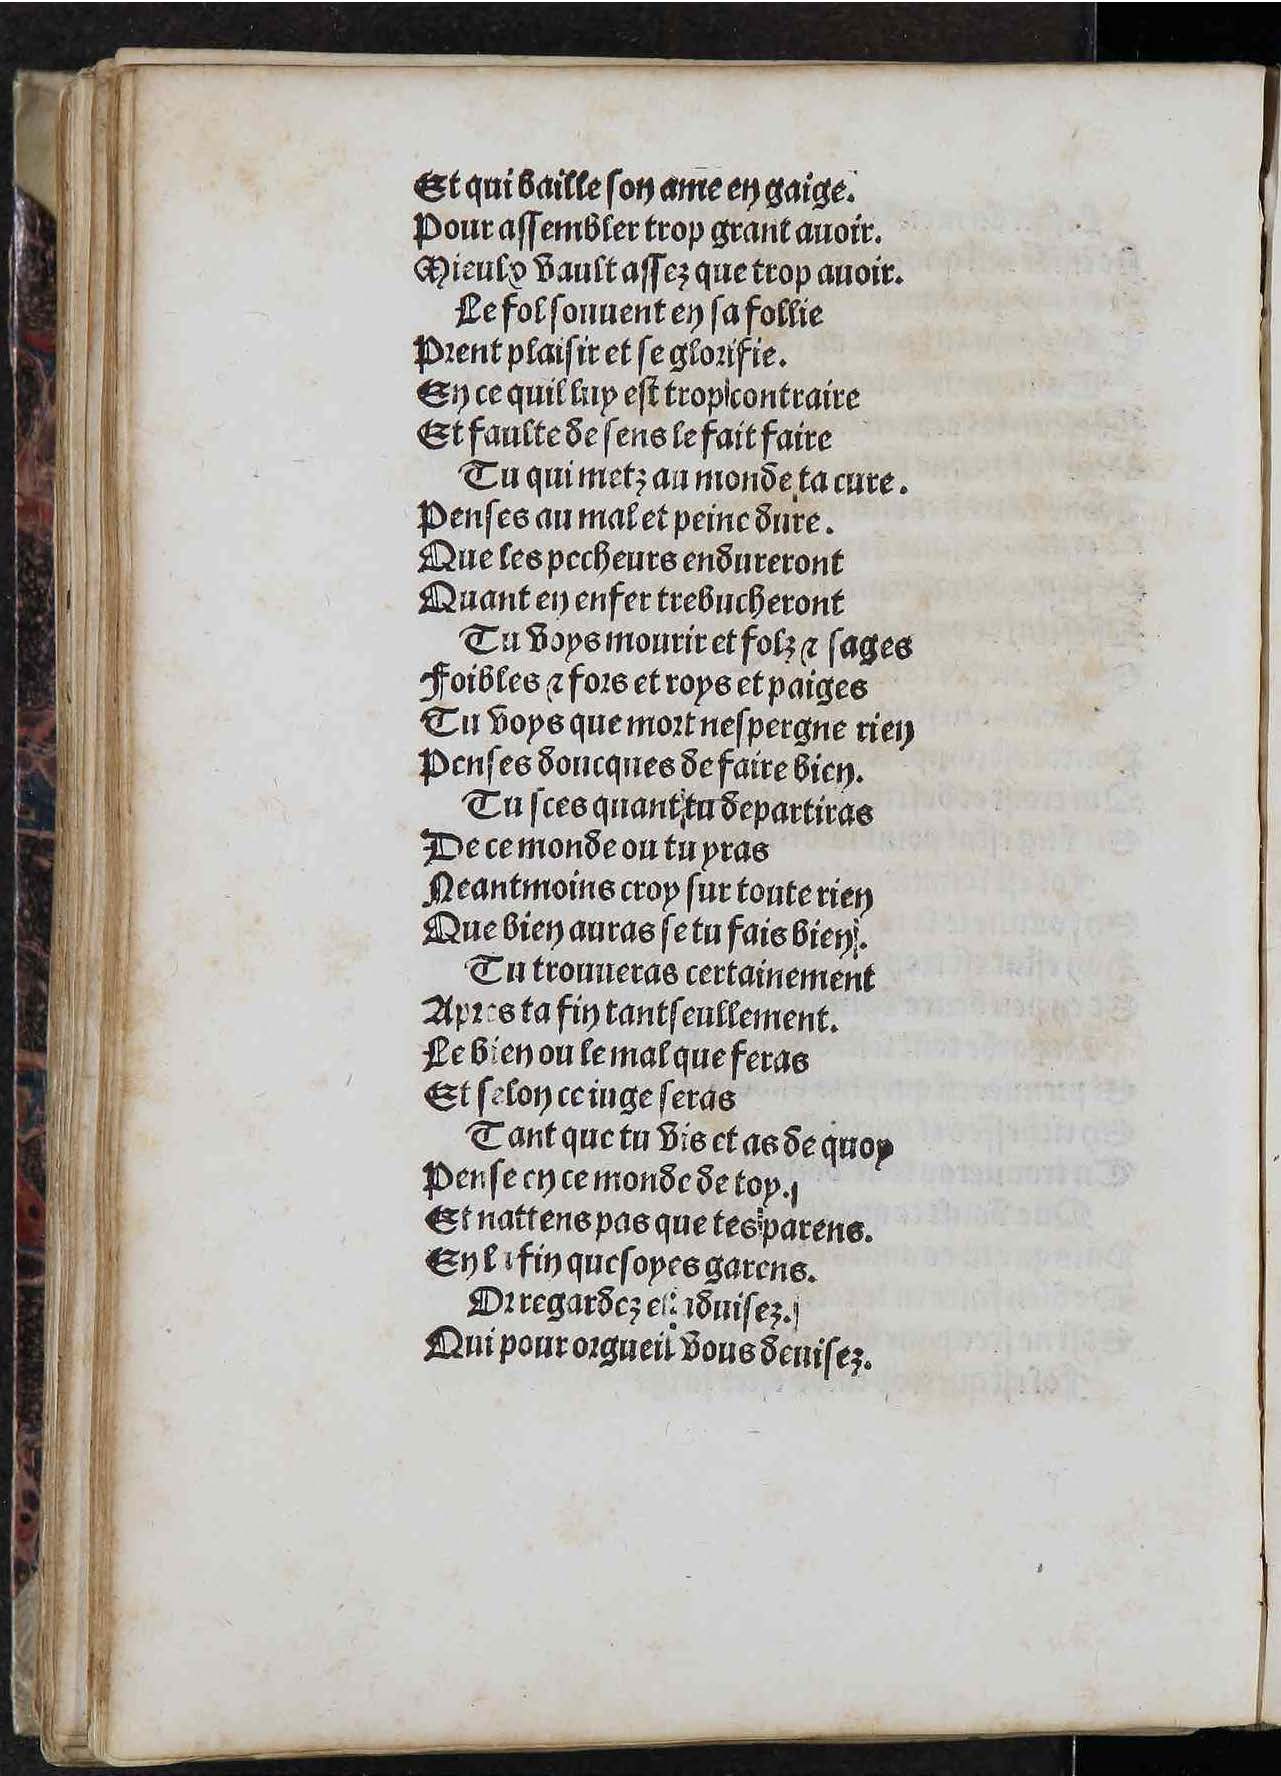 Et qui baille son ame en gaige.
Pour assembler trop grant auoir.
Mieulx vault assez que trop auoir.
Le fol souuent en sa follie
Prent plaisir et se glorifie.
En ce quil luy est trop contraire
Et faulte de sens le fait faire
Tu qui metz au monde ta cure.
Penses au mal et peine dure.
Que les pecheurs endureront
Quant en enfer trebucheront
Tu voys mourir et folz ⁊ sages
Foibles ⁊ fors et roys et paiges
Tu voys que mort nespergne rien
Penses doncques de faire bien.
Tu sces quant tu departiras
De ce monde ou tu yras
Neantmoins croy sur toute rien
Que bien auras se tu fais bien.
Tu trouueras certainement
Apres ta fin tantseullement.
Le bien ou le mal que feras
Et selon ce iuge seras
Tant que tu vis et as de quoy
Pense en ce monde de toy.
Et nattens pas que tes parens.
En la fin que soyes garens.
Or regardez et aduisez.
Qui pour orgueil vous deuisez.